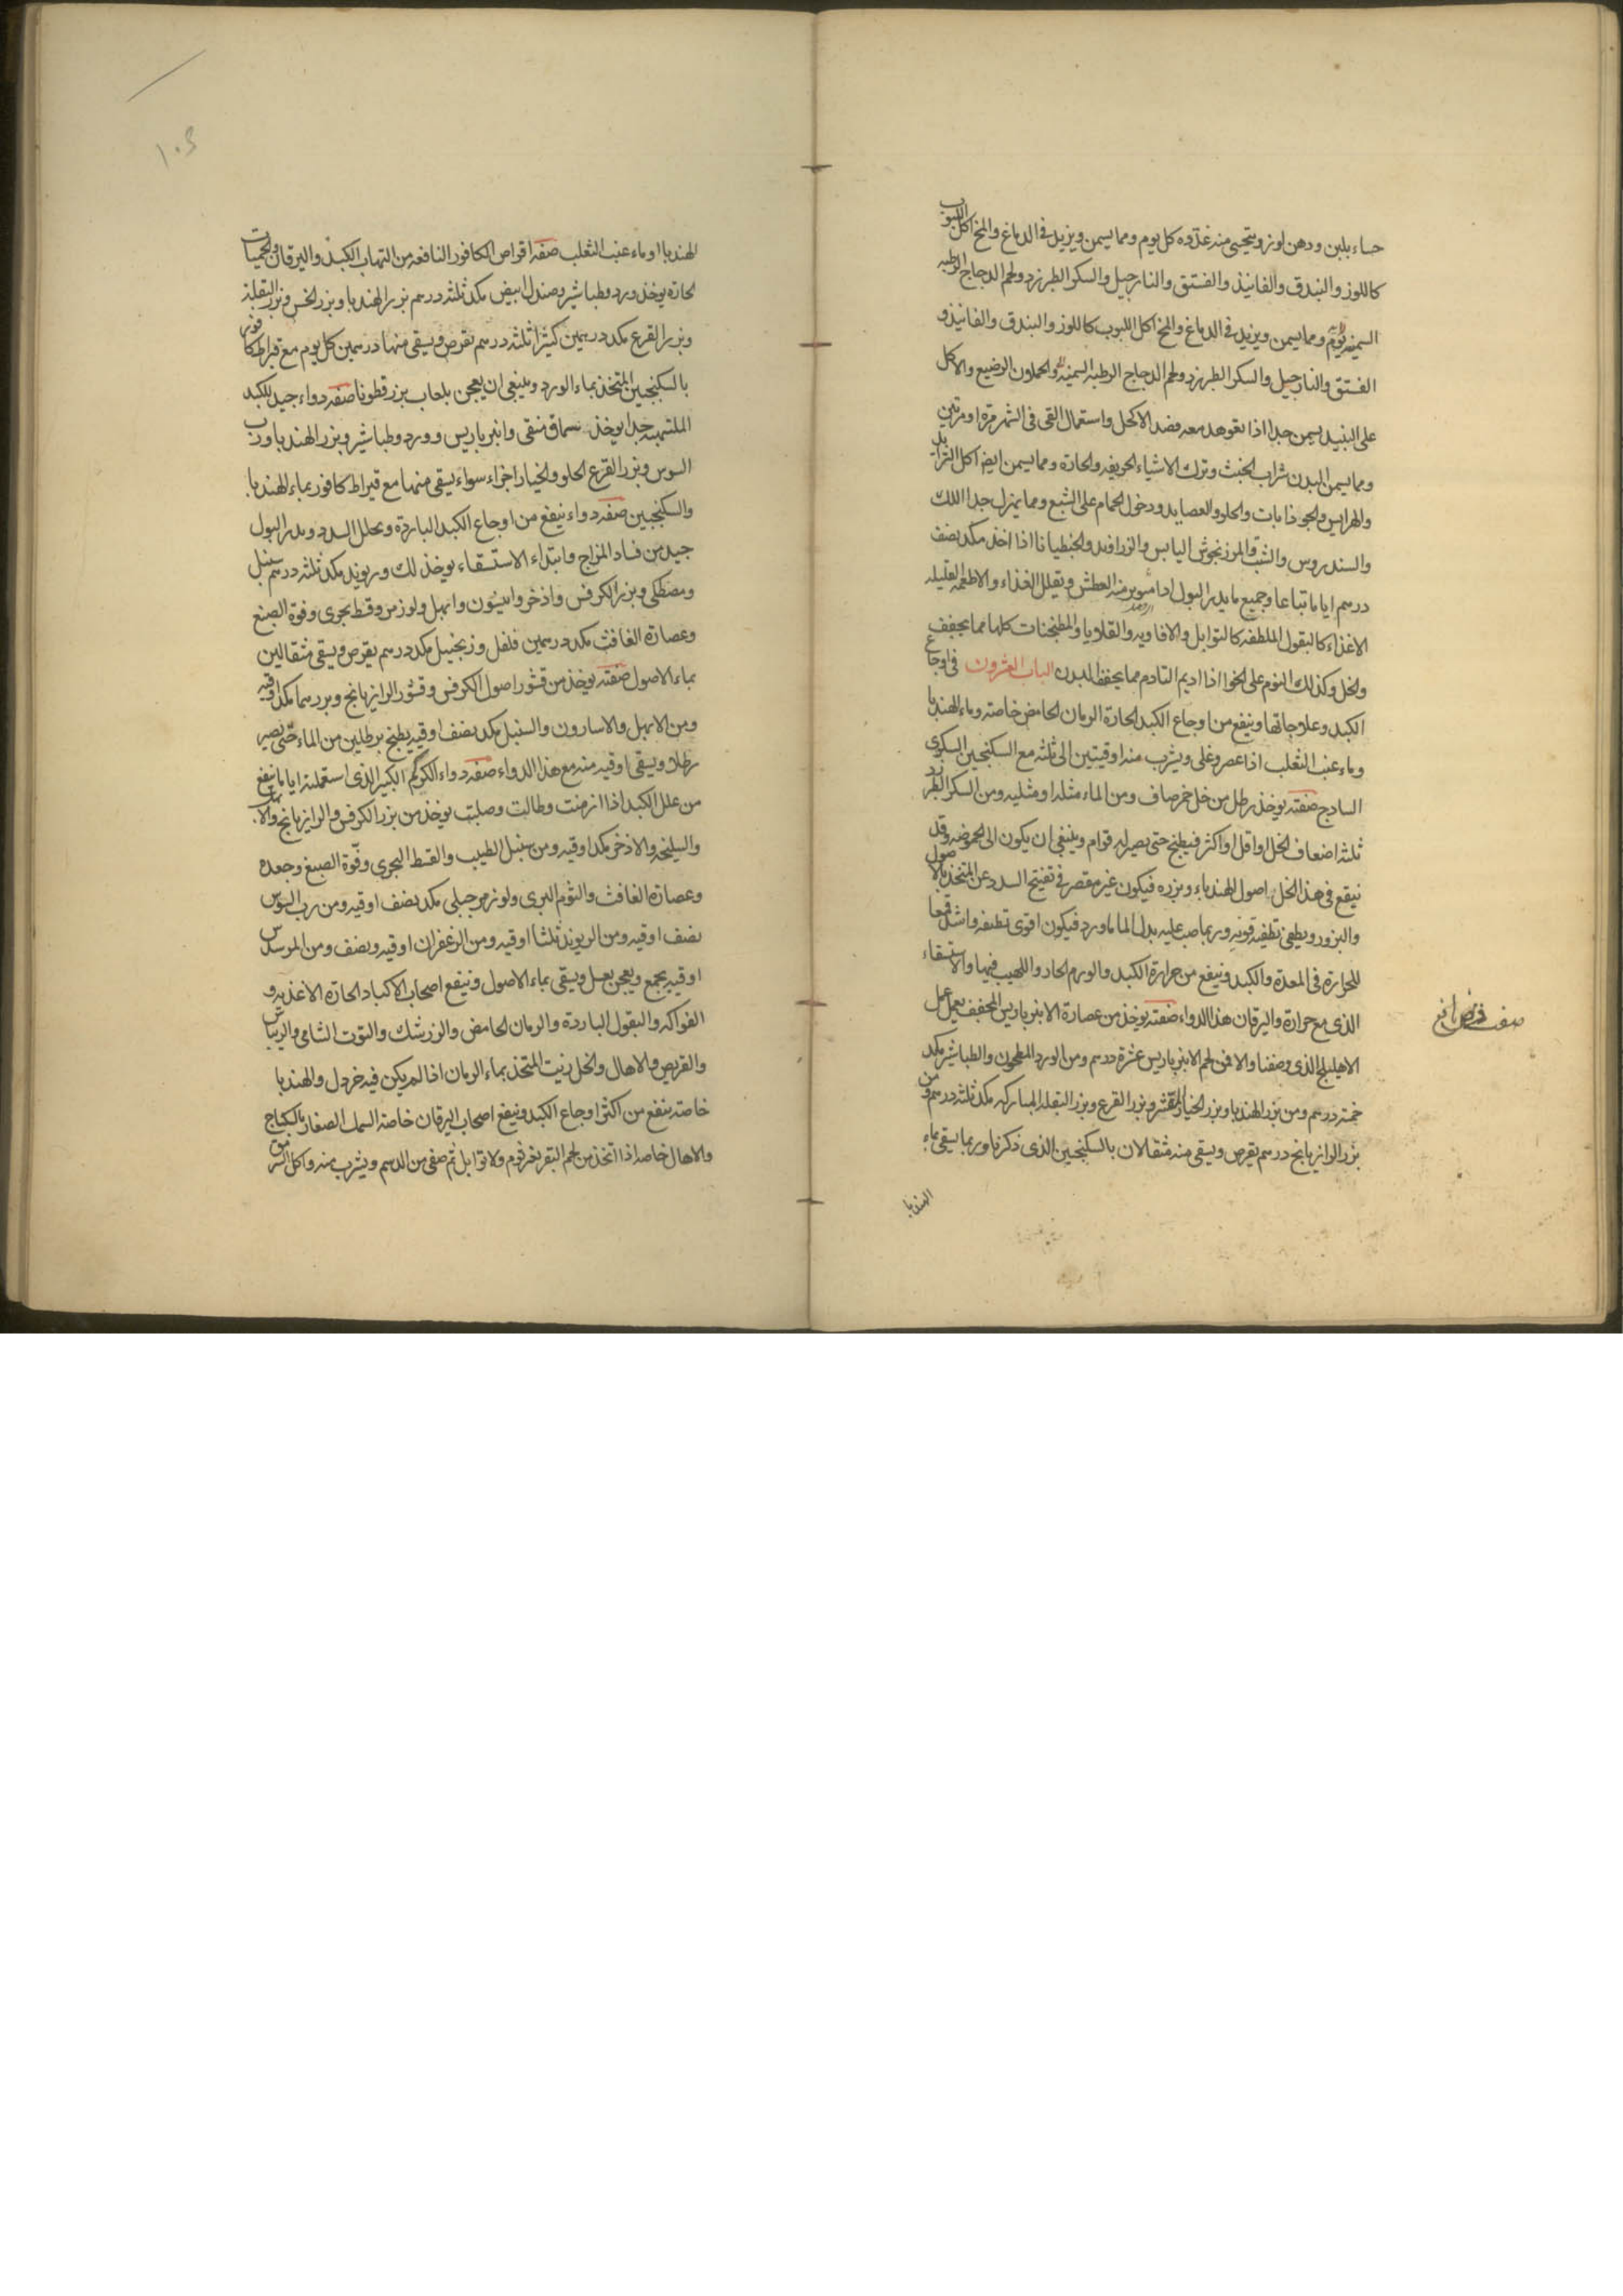 حساء بلبن ودهن لوز ويتحسى منه غدوه كل يوم ومما يسمن ويزيد في الدماغ والمخ اكل اللبوب
كاللوز والبندق والفانيذ والفستق والنارجيل والسكر الطبرزد ولحم الدجاج الرطبه
السمينه ومما يسمن ويزيد في الدماغ والمخ اكل اللبوب كاللوز والبندق والفانيذ و
الفستق والنارجيل والسكر الطبرزد ولحم الدجاج الرطبه السمينه والحملون الرضيع والاكل
على النبيذ يسمن جدا اذا تعوهد معه فصد الاكحل واستعمال القى فى الشهر مرة او مرتين
ومما يسمن البدن شراب الخبث وترك الاشياء الحريفه والحارة ومما يسمن ايضا اكل الثرايد
والهرايس والجوذابات والحلو والعصايد ودخول الحمام على الشبع ومما يهزل جدا اللك
والسندروس والشب والمرزنجوش اليابس والزراوند والجنطيانا اذا اخذ مكد نصف
درهم اياما تباعا وجميع ما يدر البول ادامنه العطش وتقليل الغذاء والاطعمه القليله
الاغذاء كالبقول الملطفه كالتوابل والافاويه والقلايا والمطجنات كلها مما يجفف
والخل وكذلك النوم على الخوا اذا اديم التادم مما يجفف البدن الباب العشرون في اوجاع
الكبد وعلاجاتها وينفع من اوجاع الكبد الحارة الرمان الحامض خاصته وماء الهندبا
وماء عنب الثعلب اذا عصر وغلى ويشرب منه اوقيتين الى ثلثه مع السكنجبين السكرى
السادج صفته يوخذ رطل من خل خمر صاف ومن الماء مثله او مثليه ومن السكر الطبرزد
ثلثه اضعاف الخل او اقل او اكثر فيطبخ حتى يصير له قوام وينبغى ان يكون الى الحموضه وقد
نيقع في هذا الخل اصول الهندباء وبزره فيكون غير مقصر في تفتيح السدد عن المتخذ بالاصول
والبزور ويطفى تطفيه قويه وربما صب عليه بدل الماء ماورد فيكون اقوى تطفيه واشد قمعا
للحرارة فى المعدة والكبد فينفع من حرارة الكبد والورم الحار واللهيب فيها والاستسقاء
الذى مع حرارة واليرقان هذا الدواء صفته يوخذ من عصارة الانبرباريس المجفف بعمل عمل
الاهليلج الذى وصفنا والا فمن لحم الانبرباريس عشرة درهم ومن الورد المطحون والطباشير مكد
خمته درهم ومن بزر الهندبا وبزر الخيار المقشر وبزر القرع وبزر البقله المباركه مكد ثلثه درهم ومن
بزر الرازيانج درهم يقرص ويسقى منه مثقالان بالسكنجبين الذى ذكرنا وربما يسقى بماء
الهندبا
صفت قرص نافع
١٠٤
الهندبا او ماء عنب الثعلب صفه اقراص الكافور النافعه من التهاب الكبد واليرقان والحميات
الحارة يوخذ ورد وطباشير وصندل ابيض مكد ثلثه درهم بزر الهندبا وبزر الخس وبزر البقله
وبزر القرع مكد درهمين كثيرا ثلثه درهم تقرص ويسقى منها درهمين كل يوم مع قيراط كافور
بالسكنجبين المتخذ بماء الورد وينبغى ان يعجن بلعاب بزر قطونا صفه دواء جيد للكبد
الملتهبه جدا يوخذ سماق منقى وانبرباريس وورد وطباشير وبزر الهندبا ورب
السوس وبزر القرع الحلو والخيار اجزاء سواء يسقى منها مع قيراط كافور بماء الهندبا
والسكنجبين صفه دواء ينفع من اوجاع الكبد الباردة ويحلل السدد ويدر البول
جيد من فساد المزاج وابتداء الاستسقاء يوخذ لك وريوند مكد ثلثه درهم سنبل
ومصطكى وبزر الكرفس واذخر وانيسون وابهل ولوز مر وقسط بحرى وفوة الصبغ
وعصارة الغافث مكد درهمين فلفل وزنجبيل مكد درهم يقرص ويسقى مثقالين
بماء الاصول صفته يوخذ من قشور اصول الكرفس وقشور الرازيانج وبزرهما مكد اوقيه
ومن الابهل والاسارون والسنبل مكد نصف اوقيه يطبخ برطلين من الماء حتى يصير
رطلا ويسقى اوقيه منه مع هذا الدواء صفه دواء الكركم الكبير الذى استعملته اياما ينفع
من علل الكبد اذا ازمنت وطالت وصلبت يوخذ من بزر الكرفس والرازيانج
والسليخه والاذخر مكد اوقيه ومن سنبل الطيب والقسط البحرى وفوة الصبغ وجعدة
وعصارة الغافث والثوم البرى ولوز مر جبلى مكد نصف اوقيه ومن رب السوس
نصف اوقيه ومن الريوند ثلثا اوقيه ومن الزعفران اوقيه ونصف ومن المر سدس
اوقيه يجمع ويعجن بعسل ويسقى بماء الاصول فينفع اصحاب الاكباد الحارة الاغذيه و
الفواكه والبقول الباردة والرمان الحامض والزرشك والتوت الشامى والريباس
والقريص والاهال والخل زيت المتخذ بماء الرمان اذا لم يكن فيه خردل والهندبا
خاصته ينفع من اكثر اوجاع الكبد وينفع اصحاب اليرقان خاصة السمك الصغار بالسكباج
والاهال خاصه اذا اتخذ من لحم البقر بغير ثوم ولا توابل ثم صفى من الدسم ويشرب منه واكل